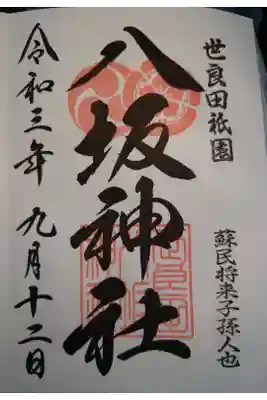 世良田祇園
蘇民将来子孫人也
八坂神社
令和三年 九月十二日